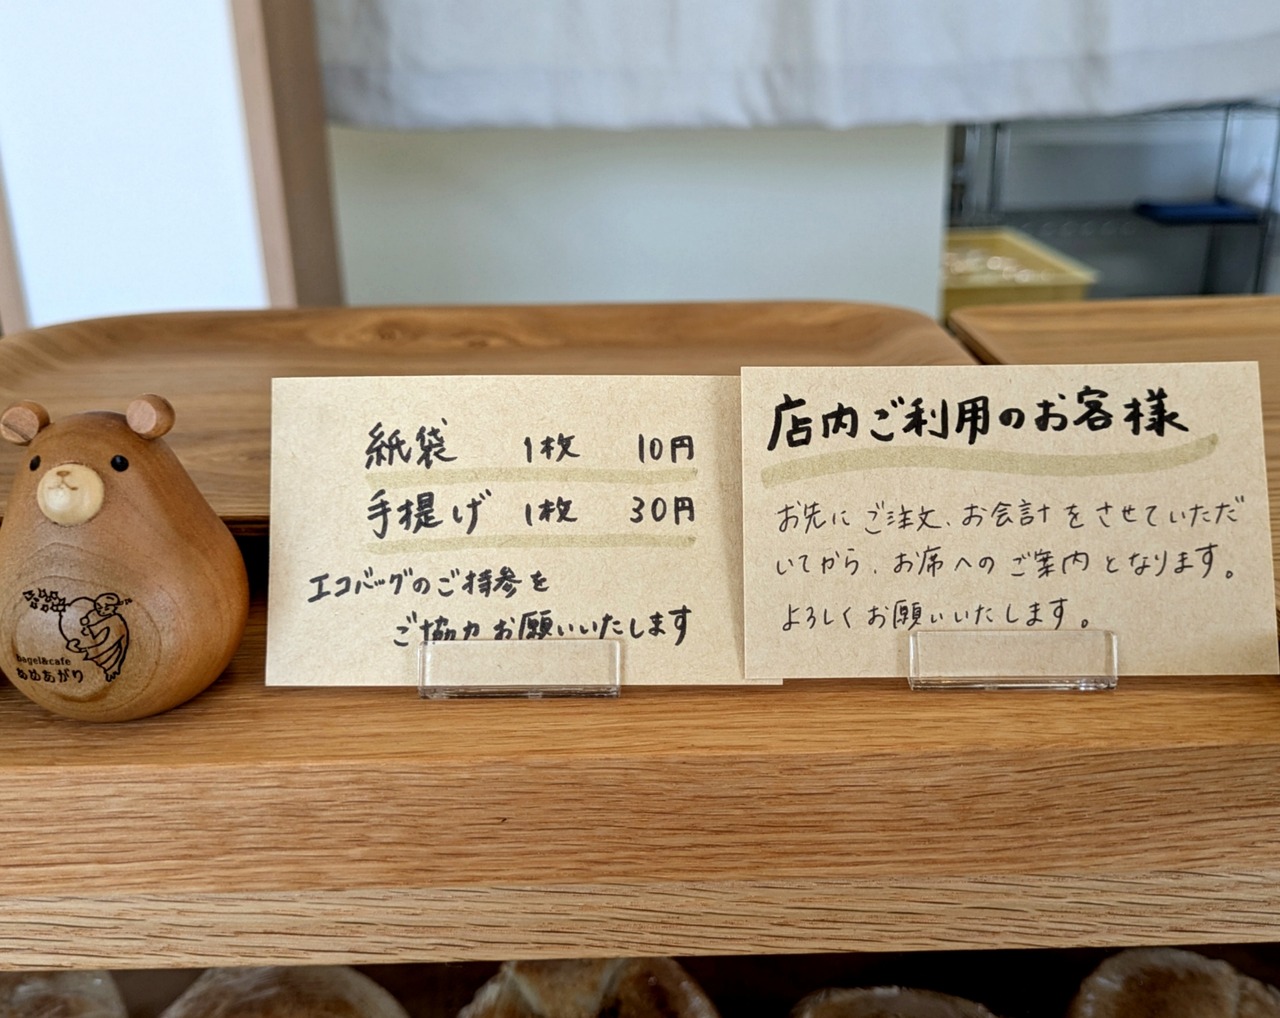 紙袋 1枚 10円
手提げ 1枚 30円
エコバッグのご持参を
ご協力お願いいたします
店内ご利用のお客様
お先にご注文、お会計をさせていただ
いてから、お席へのご案内となります。
よろしくお願いいたします。
Bagel&cafe
あめあがり